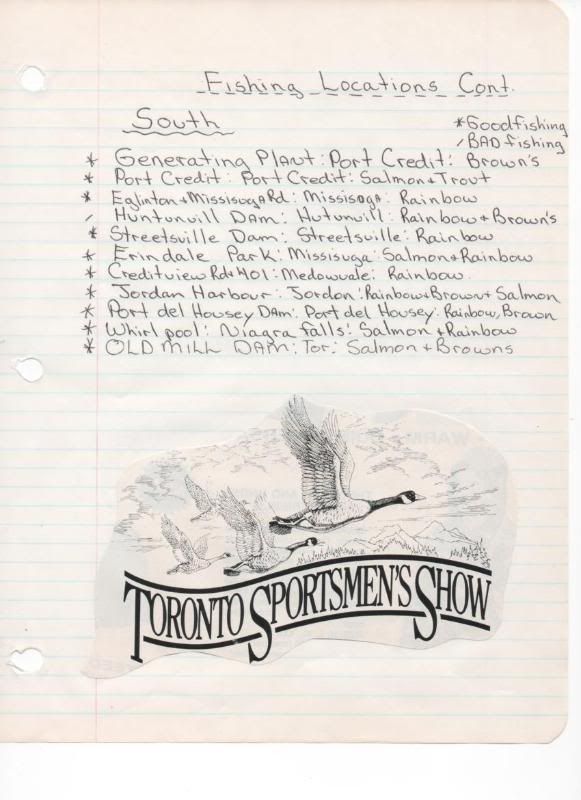 Fishing Locations Cont.
South
*Good fishing
/BAD fishing
* Generating Plant: Port Credit: Brown's
* Port Credit: Port Credit: Salmon + Trout
* Eglinton + Missisuga Rd: Missisoga: Rainbow
/ Huntunvill Dam: Hutunvill: Rainbow + Brown's
* Streetsville Dam: Streetsville: Rainbow
* Erindale Park: Missisuga: Salmon + Rainbow
* Creditview Rd + 401: Medowvale: Rainbow
* Jordan Harbour: Jordon: Rainbow + Brown + Salmon
* Port del Housey Dam: Port del Housey: Rainbow, Brown
* Whirl pool: Niagra falls: Salmon + Rainbow
* OLD MILL DAM: Tor: Salmon + Browns
TORONTO SPORTSMEN'S SHOW